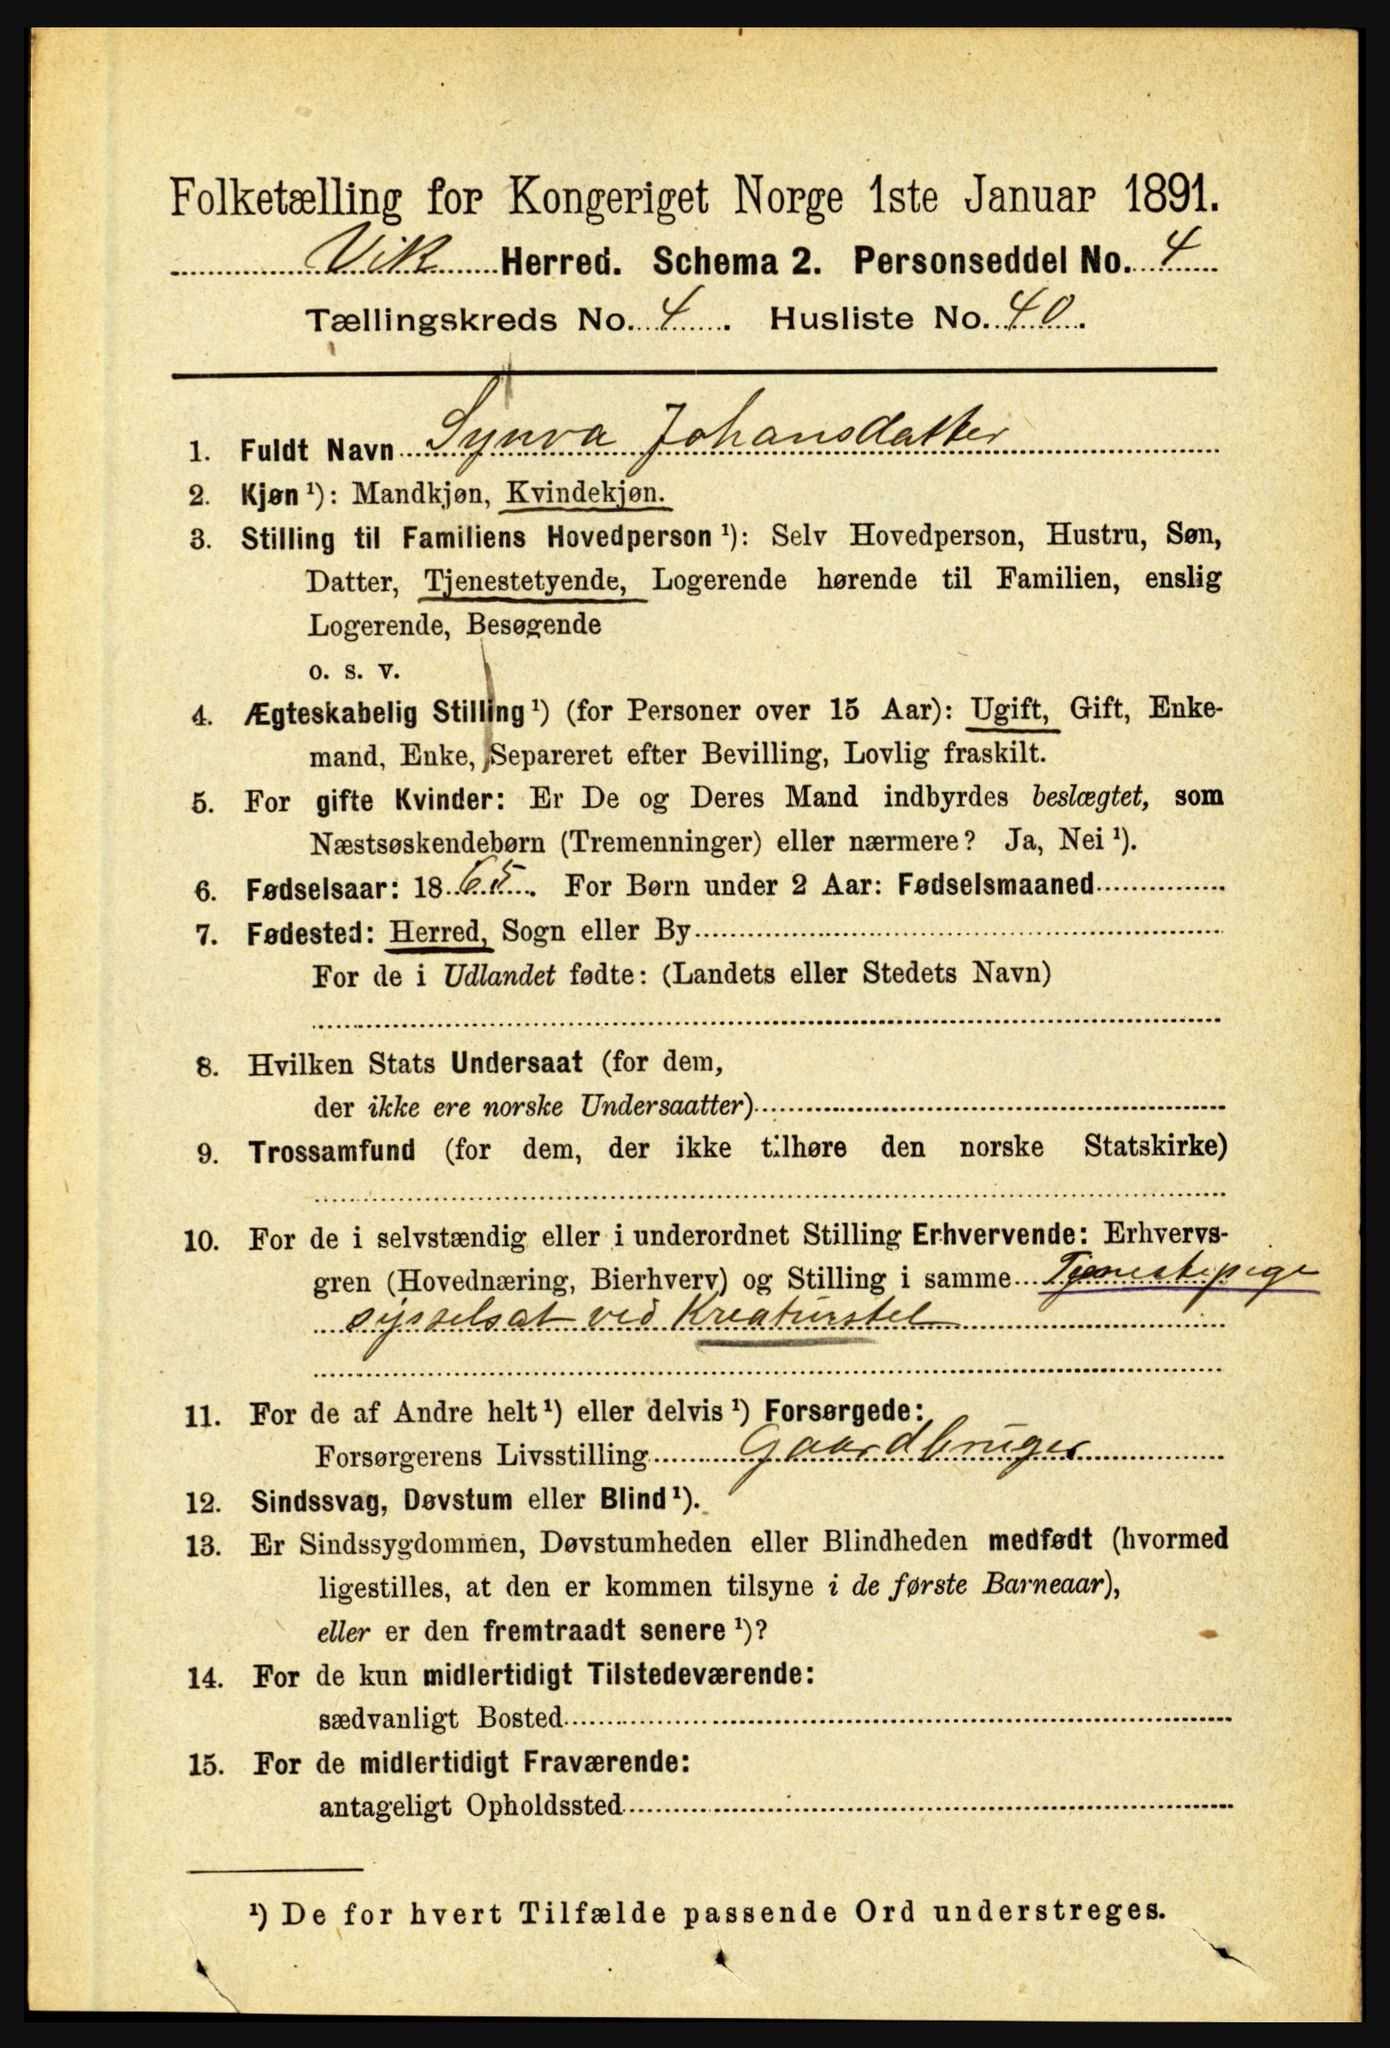 Folketælling for Kongeriget Norge 1ste Januar 1891.
Vik Herred. Schema 2. Personseddel No. 4
Tællingskreds No. 4. Husliste No. 40.
1. Fuldt Navn Synva Johansdatter
2. Kjøn ¹): Mandkjøn, Kvindekjøn.
3. Stilling til Familiens Hovedperson ¹): Selv Hovedperson, Hustru, Søn,
Datter, Tjenestetyende, Logerende hørende til Familien, enslig
Logerende, Besøgende
o. s. v.
4. Ægteskabelig Stilling ¹) (for Personer over 15 Aar): Ugift, Gift, Enke-
mand, Enke, Separeret efter Bevilling, Lovlig fraskilt.
5. For gifte Kvinder: Er De og Deres Mand indbyrdes beslægtet, som
Næstsøskendebørn (Tremenninger) eller nærmere? Ja, Nei ¹).
6. Fødselsaar: 1865. For Børn under 2 Aar: Fødselsmaaned
7. Fødested: Herred, Sogn eller By
For de i Udlandet fødte: (Landets eller Stedets Navn)
8. Hvilken Stats Undersaat (for dem,
der ikke ere norske Undersaatter)
9. Trossamfund (for dem, der ikke tilhøre den norske Statskirke)
10. For de i selvstændig eller i underordnet Stilling Erhvervende: Erhvervs-
gren (Hovednæring, Bierhverv) og Stilling i samme Tjenestepige
sysselsat ved Kreaturstel
11. For de af Andre helt ¹) eller delvis ¹) Forsørgede:
Forsørgerens Livsstilling Gaardbruger
12. Sindssvag, Døvstum eller Blind ¹).
13. Er Sindssygdommen, Døvstumheden eller Blindheden medfødt (hvormed
ligestilles, at den er kommen tilsyne i de første Barneaar),
eller er den fremtraadt senere ¹)?
14. For de kun midlertidigt Tilstedeværende:
sædvanligt Bosted
15. For de midlertidigt Fraværende:
antageligt Opholdssted
¹) De for hvert Tilfælde passende Ord understreges.